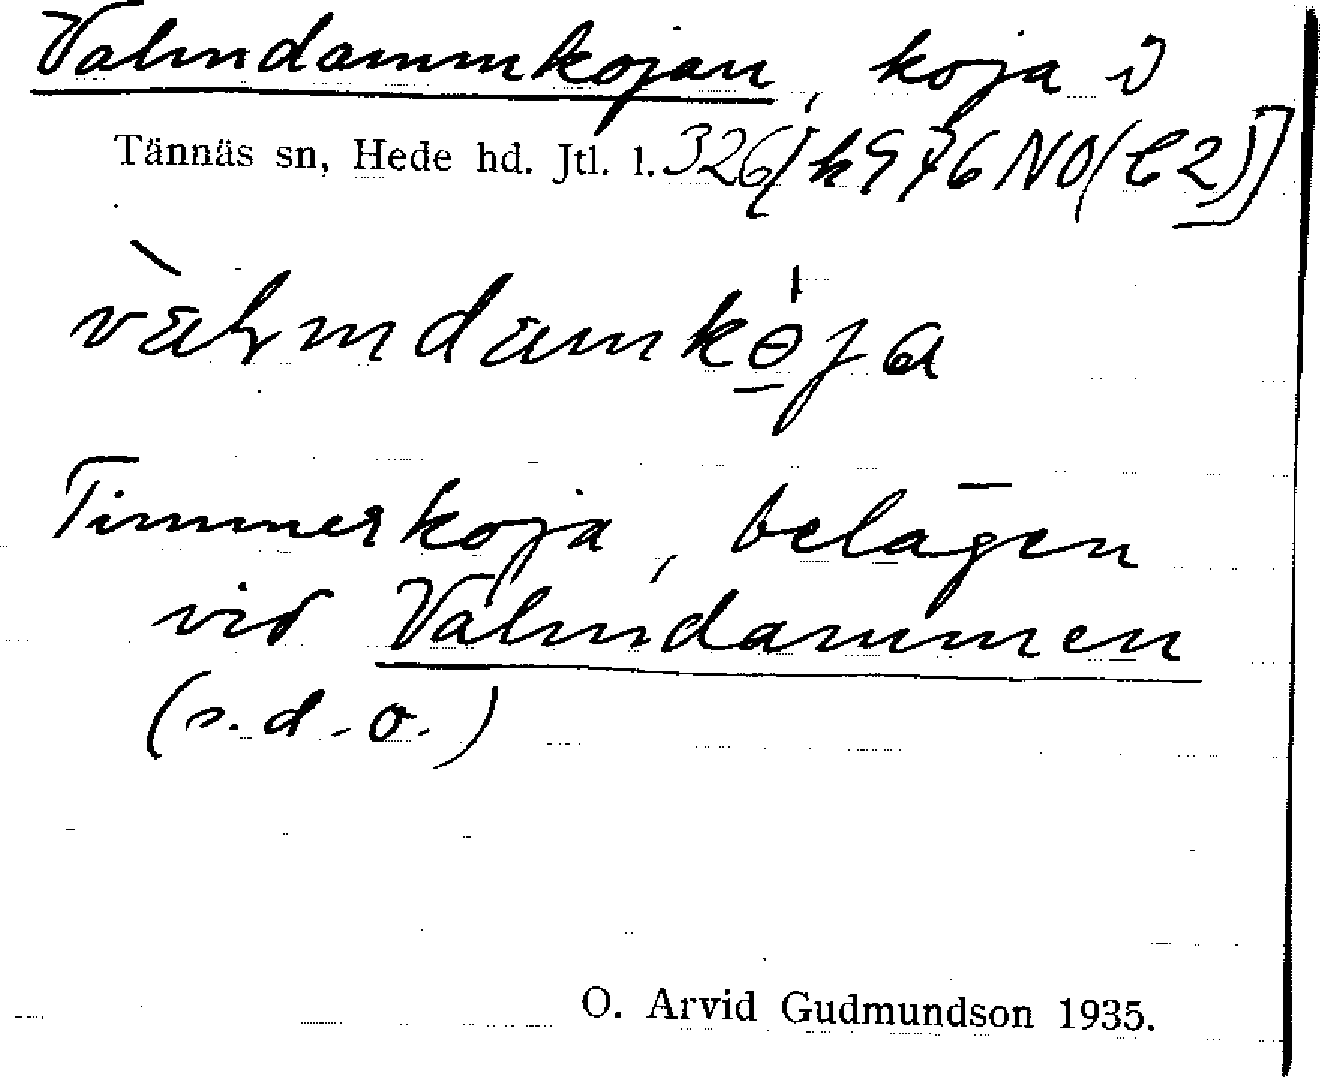 Valmdammkojan, koja i
Tännäs sn, Hede hd. Jtl. l. 326 [k 976 NO (C2)]
Timmerkoja, belägen
vid Valmdammen
(s.d.o.)
O. Arvid Gudmundson 1935.